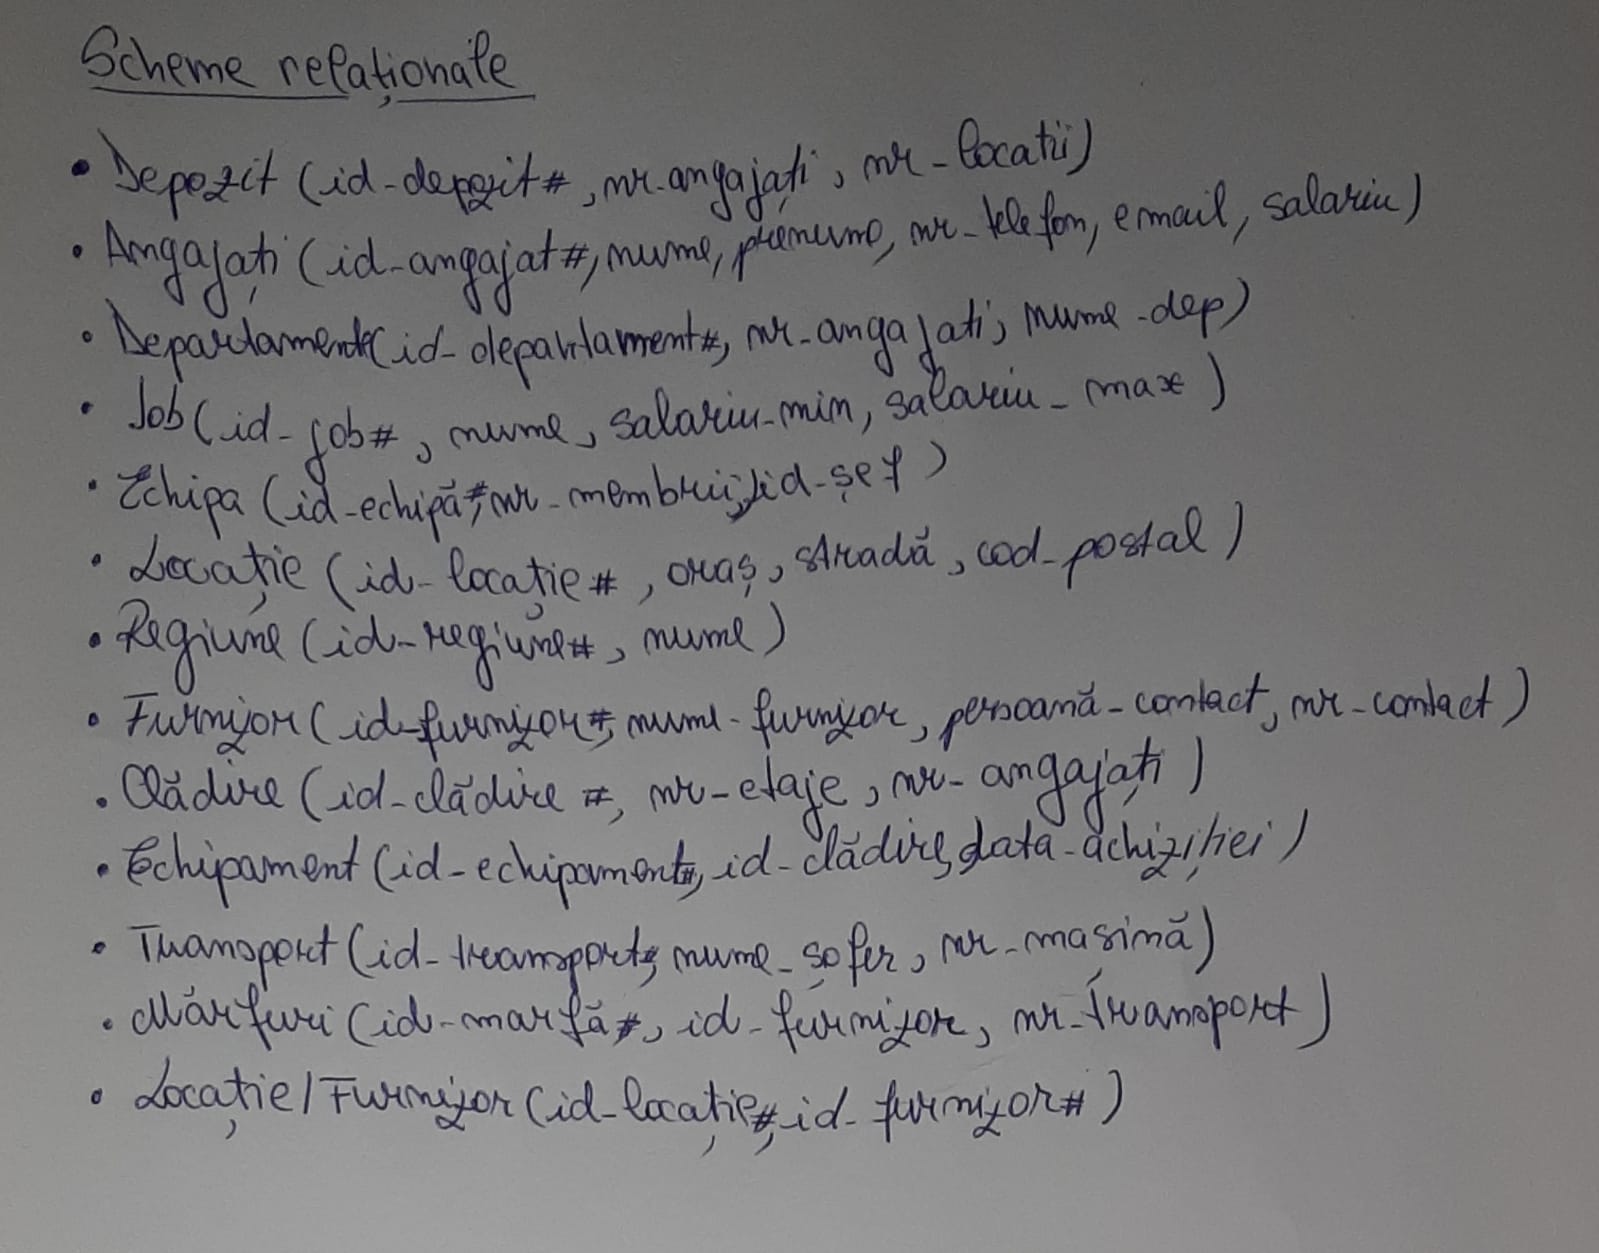 Scheme relaționale
• Depozit (id-depozit#, nr-angajați, nr-locatii)
• Angajați (id-angajat#, nume, prenume, nr-telefon, email, salariu)
• Departamente(id-departament#, nr-angajati, nume-dep)
• Job(id-job#, nume, salariu-min, salariu-max)
• Echipa (id-echipă#, nr-membrii, id-șef)
• Locație (id-locație#, oraș, stradă, cod-postal)
• Regiune (id-regiune#, nume)
• Furnizor (id-furnizor#, nume-furnizor, persoană-contact, nr-contact)
• Clădire (id-clădire #, nr-etaje, nr-angajați)
• Echipament (id-echipament#, id-clădire, data-achiziției)
• Transport (id-transport#, nume-șofer, nr-masină)
• Mărfuri (id-marfă#, id-furnizor, nr-transport)
• Locație/Furnizor (id-locație#, id-furnizor#)